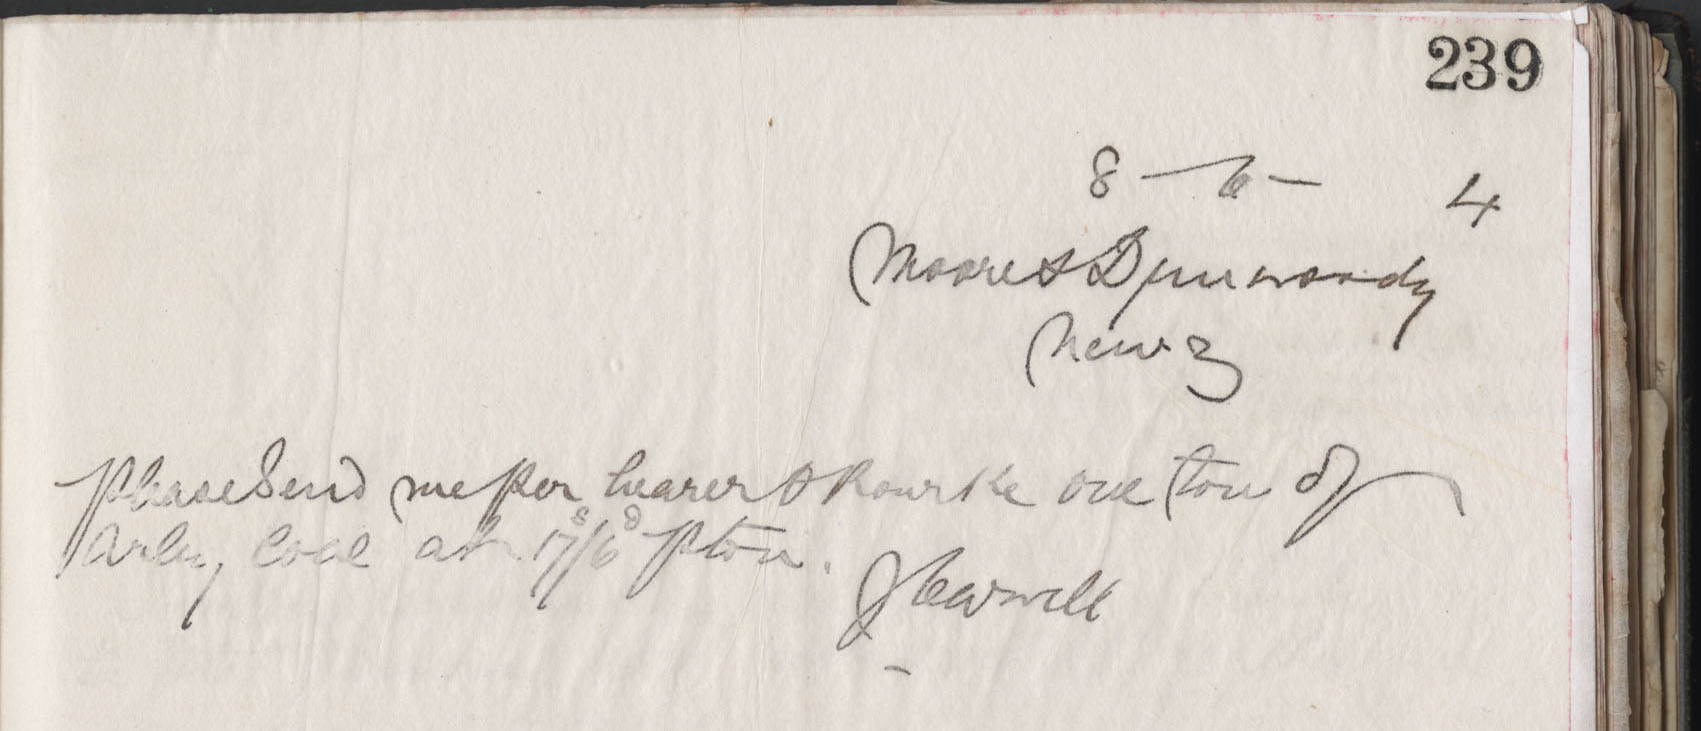 239
8 — 6 — 4
Moore & Dunwoody
Newry
Please Send me per bearer O Rourke one ton of
Arley Coal at 17s/6d p ton.